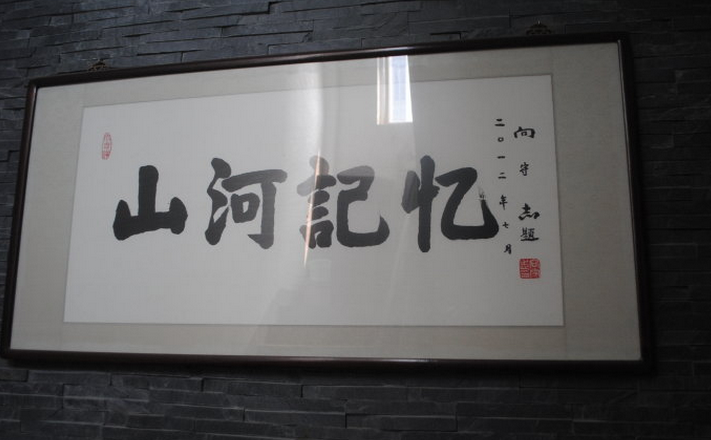 山河記忆
二〇一二年七月
向守志題